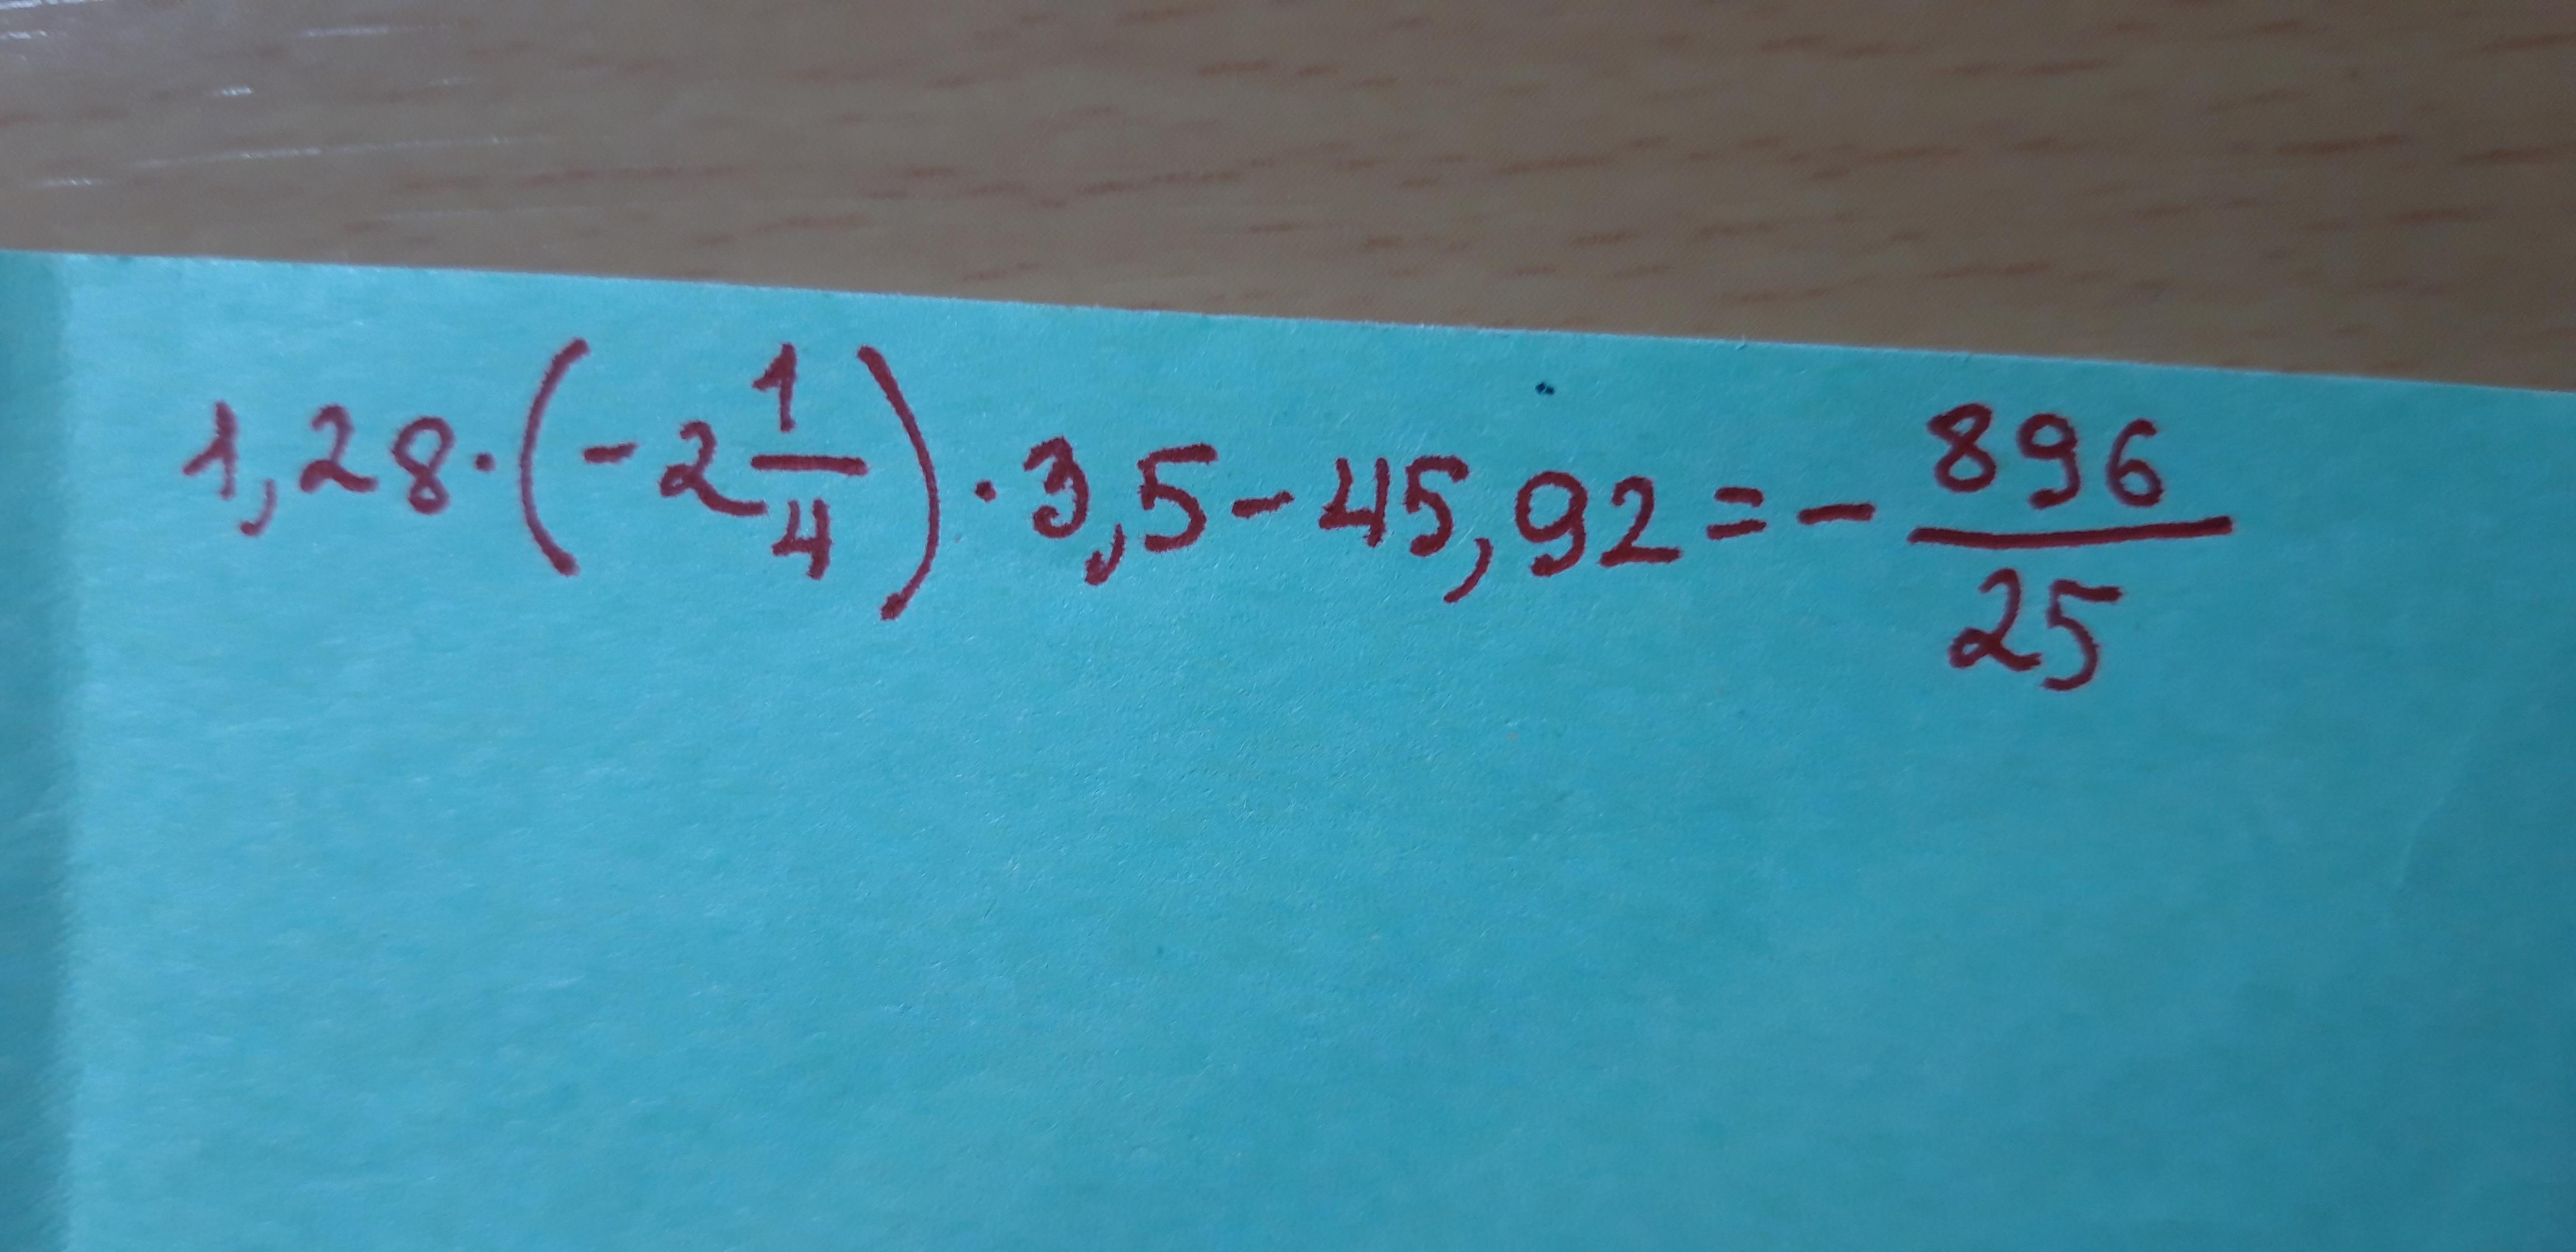 1,28·(-2 1/4)·3,5-45,92=-896/25